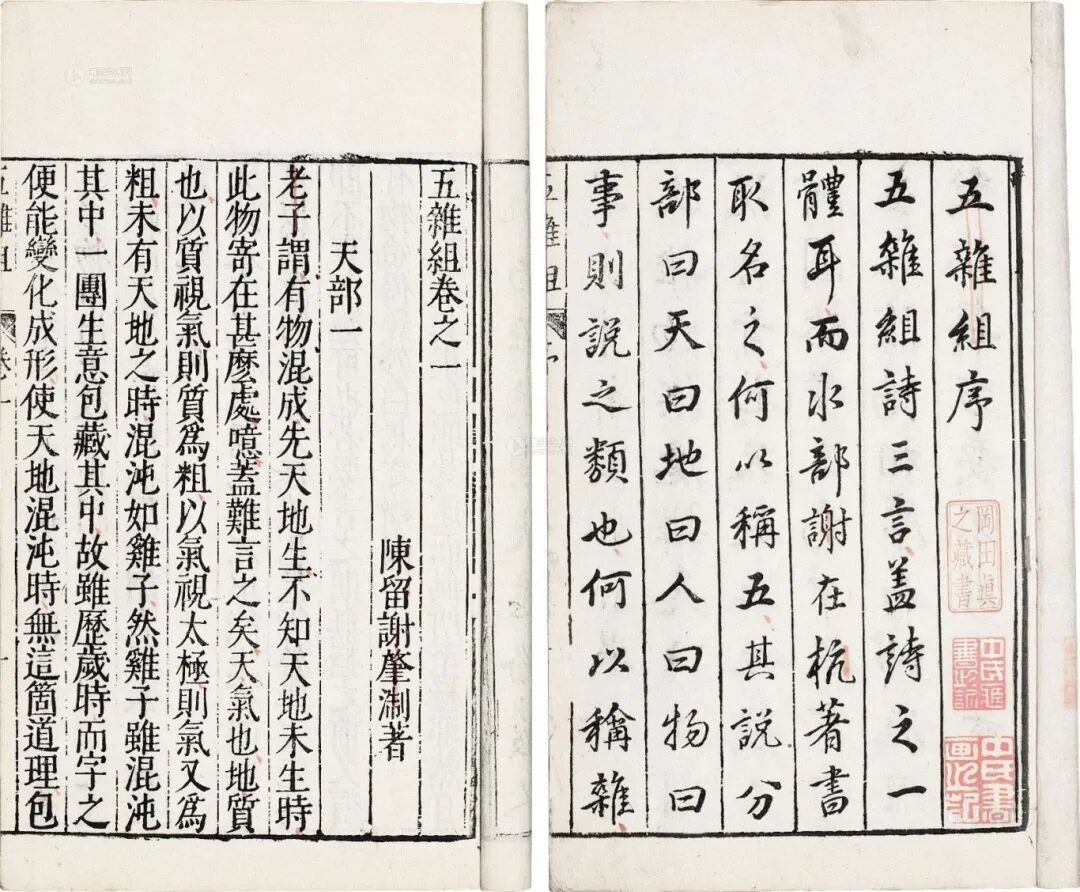 五雜組序
五雜組詩三言蓋詩之一
體耳而水部謝在杭著書
取名之何以稱五其說分
部曰天曰地曰人曰物曰
事則說之類也何以稱雜
岡田真
之藏書
五雜組卷之一
陳留謝肇淛著
天部一
老子謂有物混成先天地生不知天地未生時
此物寄在甚麼處噫蓋難言之矣天氣也地質
也以質視氣則質爲粗以氣視太極則氣又爲
粗未有天地之時混沌如雞子然雞子雖混沌
其中一團生意包藏其中故雖歷歲時而字之
便能變化成形使天地混沌時無這箇道理包
五雜組
卷一